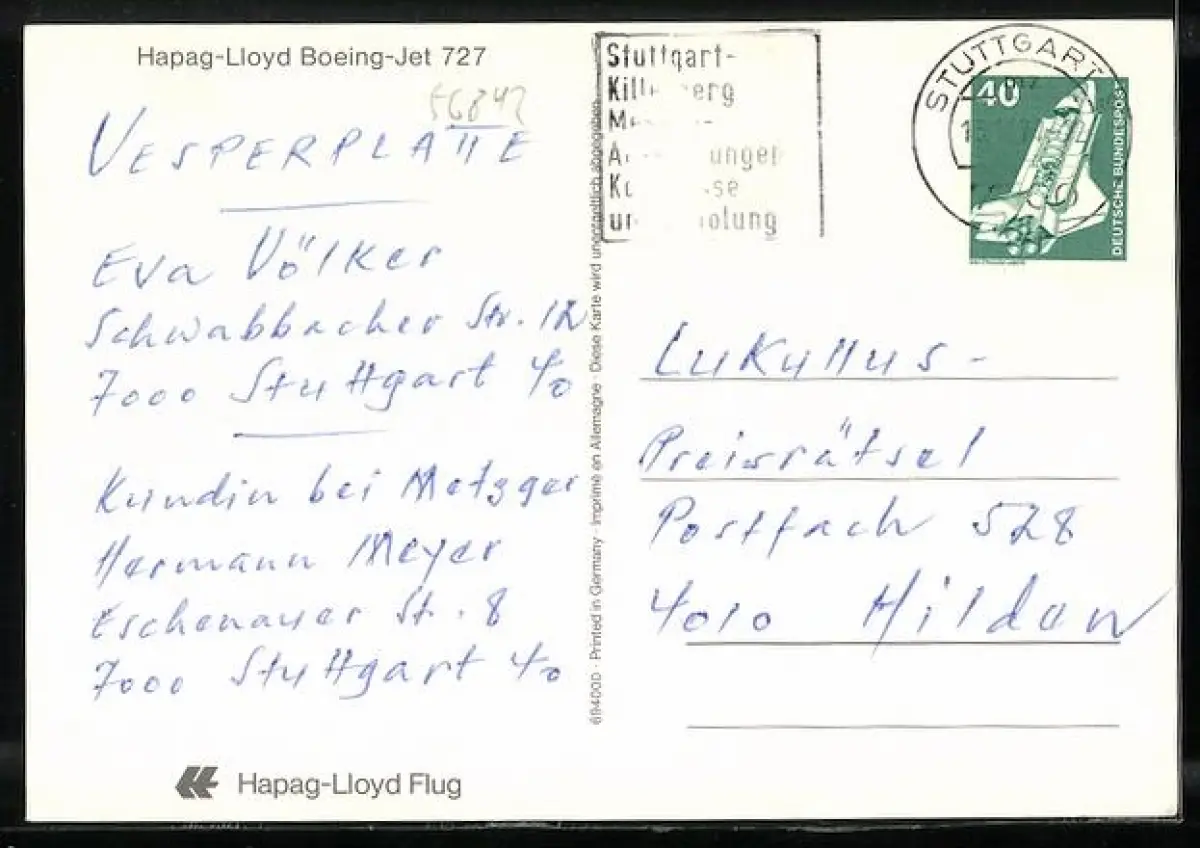 Hapag-Lloyd Boeing-Jet 727
56842
VESPERPLATTE
Eva Völker
Schwabbacher Str. 12
7000 Stuttgart 40
Kundin bei Metzger
Hermann Meyer
Eschenauer St. 8
7000 Stuttgart 40
Hapag-Lloyd Flug
694000 · Printed in Germany · Imprimé en Allemagne · Diese Karte wird unentgeltlich abgegeben
Stuttgart-
STUTTGART
40
DEUTSCHE BUNDESPOST
Lukullus-
Preisrätsel
Postfach 528
4010 Hilden